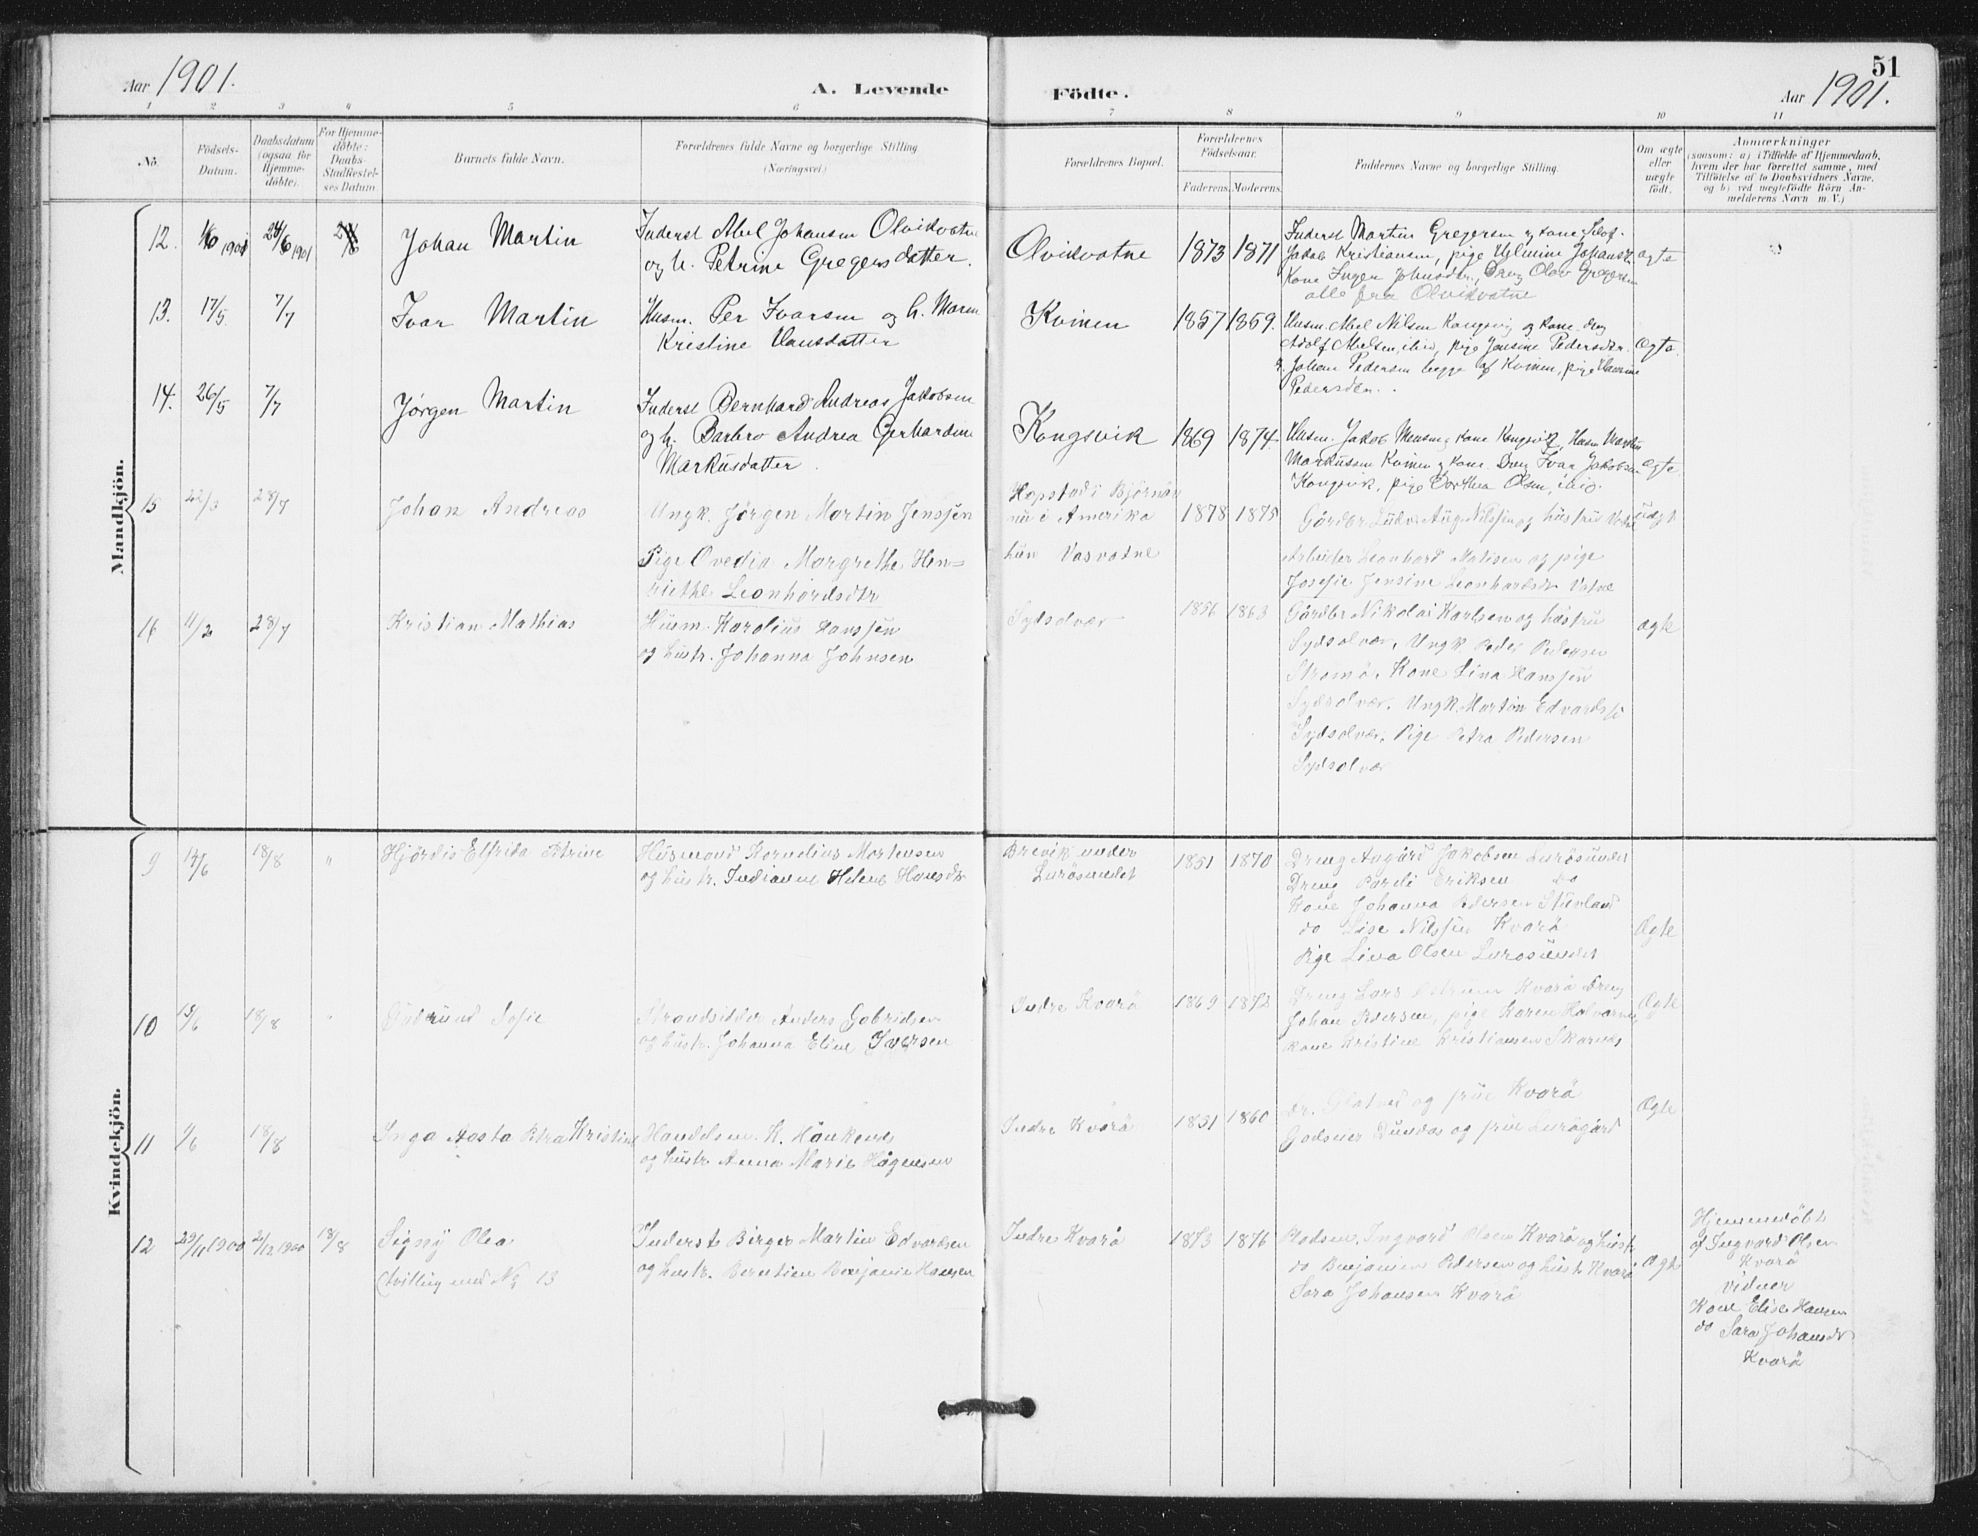 Aar 1901.
A. Levende
Födte.
51
Aar 1901.
1 2 3 4 5 6 7 8 9 10 11
No
Födsels-
Datum.
Daabsdatum
(ogsaa for
Hjemme-
döbte).
For Hjemme-
döbte:
Daabs-
Stadfæstel-
ses Datum
Barnets fulde Navn.
Forældrenes fulde Navne og borgerlige Stilling
(Næringsvei.)
Forældrenes Bopæl.
Forældrenes
Födselsaar.
Faderens. Moderens.
Faddernes Navne og borgerlige Stilling.
Om ægte
eller
uægte
födt.
Anmærkninger
(saasom: a) i Tilfælde af Hjemmedaab,
hvem der har forrettet samme, med
Tilföielse af to Daabsvidners Navne,
og b) ved uægtefödte Börn An-
melderens Navn m. V.)
Mandkjön.
12. 1/6 1901 24/6 1901
Johan Martin
Inderst Abel Johansen Olvikvatne
og h. Petrine Gregersdatter.
Olvikvatne
1873 1871
Inderst Martin Gregersen og kone
Jakob Kristiansen, pige Helmine
Kone Inger Johnsdtr., Dreng Olav Gregersen
alle fra Olvikvatne
ægte
13. 17/5. 7/7
Ivar Martin
Husm. Per Ivarsen og h. Maren
Kristine Hansdatter
Kvinen
1857 1859.
Husm. Abel Nilsen Kongsvig og kone. dreng
Adolf Abelsen, ibid, pige Jensine Pedersdtr.
og Johan Pedersen begge af Kvinen, pige
Pedersdtr.
Ægte.
14. 26/5 7/7
Jørgen Martin
Inderst Bernhard Andreas Jakobsen
og h. Barbro Andrea Gerhardine
Markusdatter.
Kongsvik
1869 1874.
Husm. Jakob Monsen og kone Kongsvik, Husm Martin
Markussen Kvinen og kone. Dreng Ivar Jakobsen
Kongsvik, pige Dorthea Olsen, ibid.
ægte.
15 22/3 28/7
Johan Andreas
Ungk. Jørgen Martin Jenssen
Pige Ovedia Margrethe Hen=
riethe Leonhardsdtr
Hopstad i Björnør
nu i Amerika
hun Vasvatne
1878 1875
Gårdbr Ludv. Aug. Nilssen og hustru
Arbeider Leonhard Matisen og pige
Josefie Jensine Leonhardsdtr
uægt
16 11/2 28/7
Kristian Mathias
Husm. Karolius Hanssen
og hustr. Johanna Johnsen
Sydsolvær
1856 1863
Gårdbr Nikolai Karlsen og hustru
Sydsolvær. Ungk. Peder Pedersen
Strømö. Kone Lina Hanssen
Sydsolvær. Ungk. Martin Edvardss
Sydsolvær. Pige Petra Pedersen
Sydsolvær
ægte
Kvindekjön.
9 14/6 18/8 "
Hjördis Elfrida Petrine
Husmand Kornelius Mortensen
og hustr. Indianne Helene Hansdtr
Brevik under
Lurösundet
1851 1870
Dreng Aagård Jakobsen Lurösundet
Dreng Pareli Eriksen do
Kone Johanna Pedersen Stuvland
do Lise Nilssen Kvarö
Pige Lina Olsen Lurösundet
Ægte
10 15/6 18/8 "
Gudrund Sofie
Strandsidder Anders Gabrielsen
og hustr. Johanna Eline Iversen
Indre Kvarö
1869 1872
Dreng Lars Kvarö Dreng
Johan Pedersen, pige Karen
Kone Kristine Kristiansen
Ægte
11 18/8
Inga Aasta Petra Kristine
Handelsm. K. Haukenes
og hustr Anna Marie Hågensen
Indre Kvarö
1851 1860
Dr. og frue Kvarö
Godseier Dundas og frue Lurögård
Ægte
12 29/11 1900 2/12 1900 18/8
Signy Olea
(tvilling med No 13
Inderst Birger Martin Edvardsen
og hustr. Berntien Benjamin Hansen
Indre Kvarö
1873 1876
Ingvard Olsen Kvarö og hustr
do Benjamin Pedersen og hustr Kvarö
Sara Johansen Kvarö
Ægte
Hjemmedöbt
af Ingvard Olsen
Kvarö
vidner
Kone Elise Hansen
do Sara Johansdtr
Kvarö